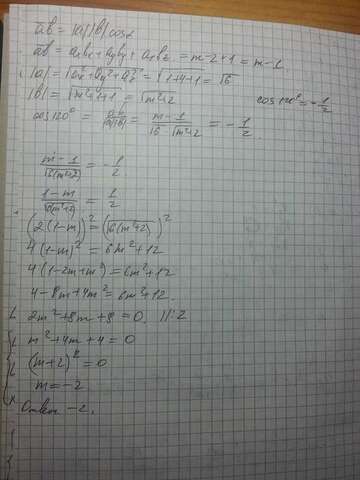 ab = |a| |b| cosα
ab = aₓbₓ + a_yb_y + a_zb_z = m-2+1 = m-1
|a| = √(aₓ² + a_y² + a_z²) = √(1+4+1) = √6
|b| = √(m²+1+1) = √(m²+2)
cos 120° = -1/2
cos 120° = ab/(|a||b|) = (m-1)/(√6 · √(m²+2)) = -1/2.
(m-1)/√(6(m²+2)) = -1/2
(1-m)/√(6(m²+2)) = 1/2
(2(1-m))² = (√(6(m²+2)))²
4(1-m)² = 6m²+12
4(1-2m+m²) = 6m²+12
4-8m+4m² = 6m²+12.
2m²+8m+8=0. ||:2
m²+4m+4=0
(m+2)²=0
m=-2
Ответ -2.